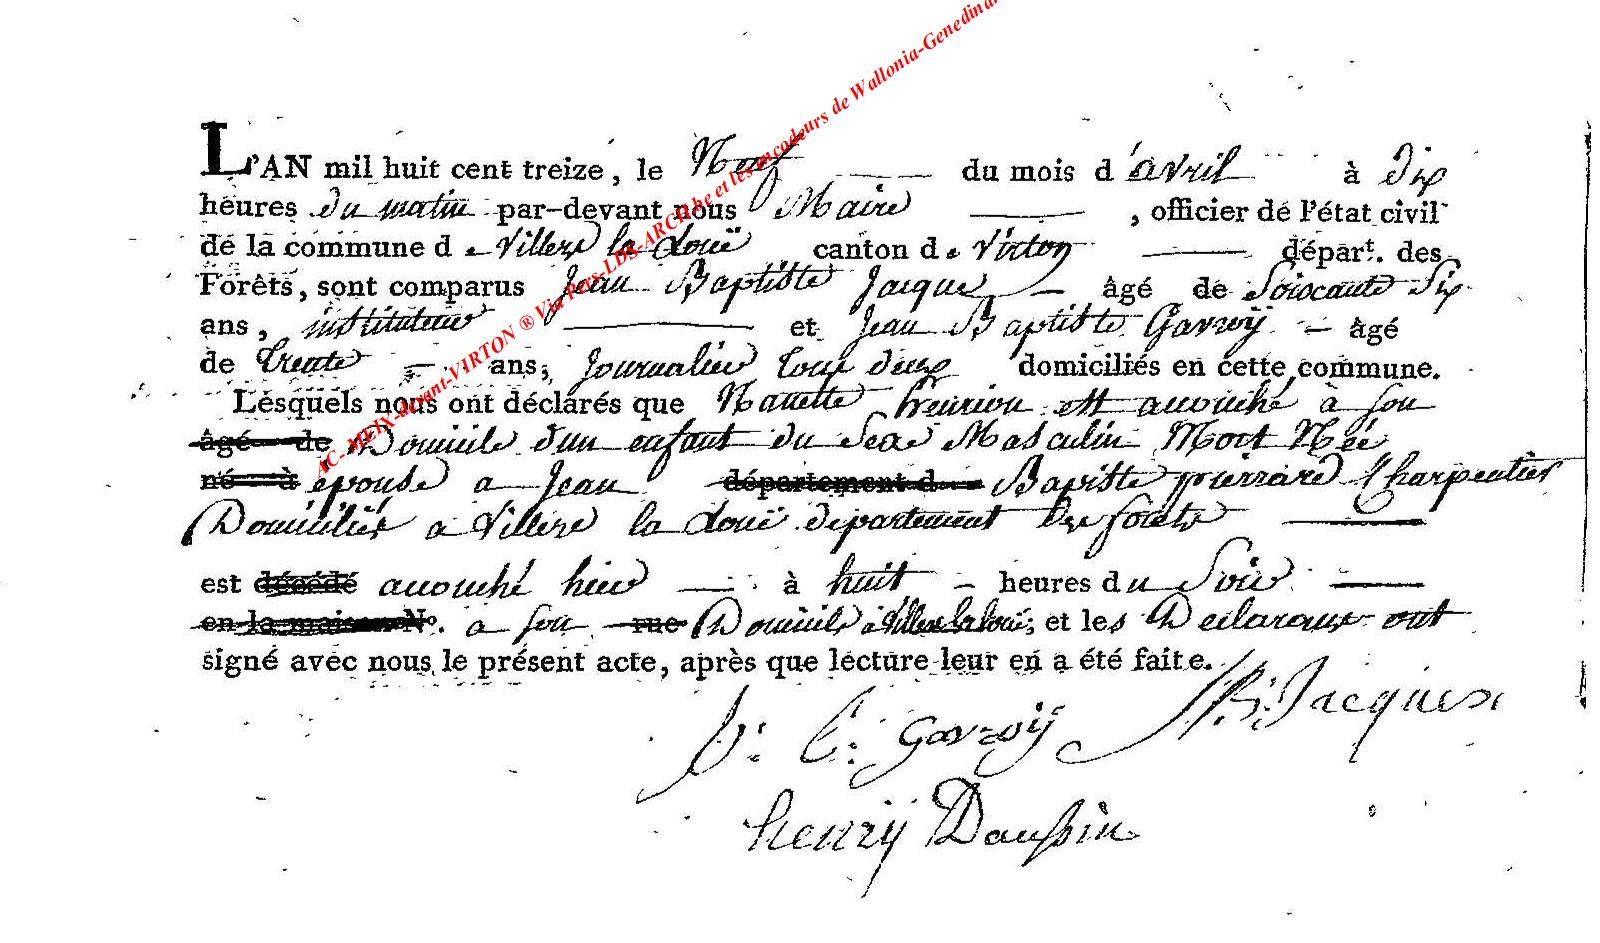 AC-MEIX-devant-VIRTON ® Via Pars-LDS-ARCH be et les encodeurs de Wallonia-Genedinar
L'AN mil huit cent treize, le Neuf du mois d'avril à dix
heures du matin par-devant nous Maire, officier de l'état civil
de la commune de Villers la Loüe canton de Virton départ. des
Forêts, sont comparus Jean Baptiste Jacques âgé de Soixante Six
ans, instituteur et Jean Baptiste Gavroÿ âgé
de trente ans, journalier tous deux domiciliés en cette commune.
Lesquels nous ont déclarés que Nanette henrion est accouché à son
âgé de Domicile d'un enfant du Sexe Masculin Mort Née
né à épouse a Jean département d Baptiste pierrard Charpentier
Domiciliés a Villers la Loüe département des forets
est décédé accouché hier à huit heures du Soir
en la maison N°. a son rue Domicile à Villers la Loüe, et les Declarans ont
signé avec nous le présent acte, après que lecture leur en a été faite.
J: B: Gavroÿ J B: Jacques
henrÿ Daussin